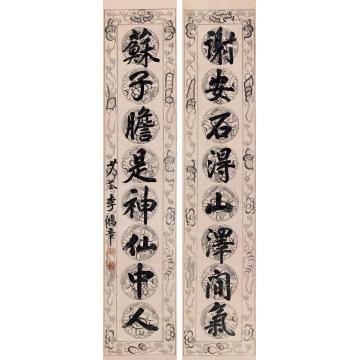 謝安石得山澤間氣
蘇子瞻是神仙中人
少荃李鴻章